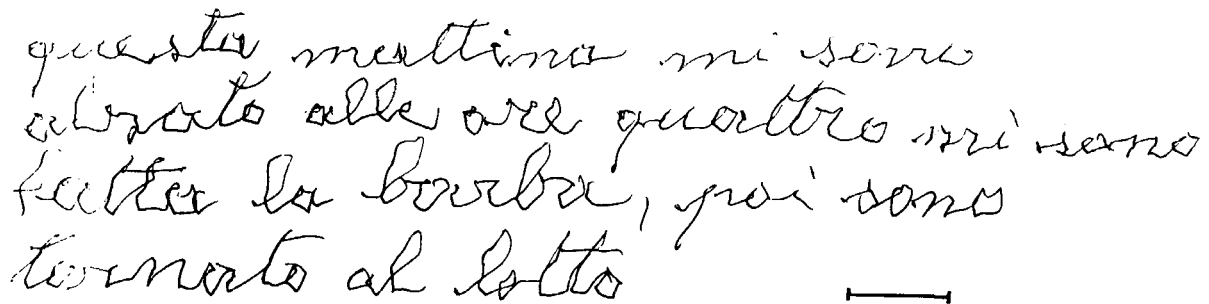 questa mattina mi sono
alzato alle ore quattro mi sono
fatta la barba, poi sono
tornato al lotto